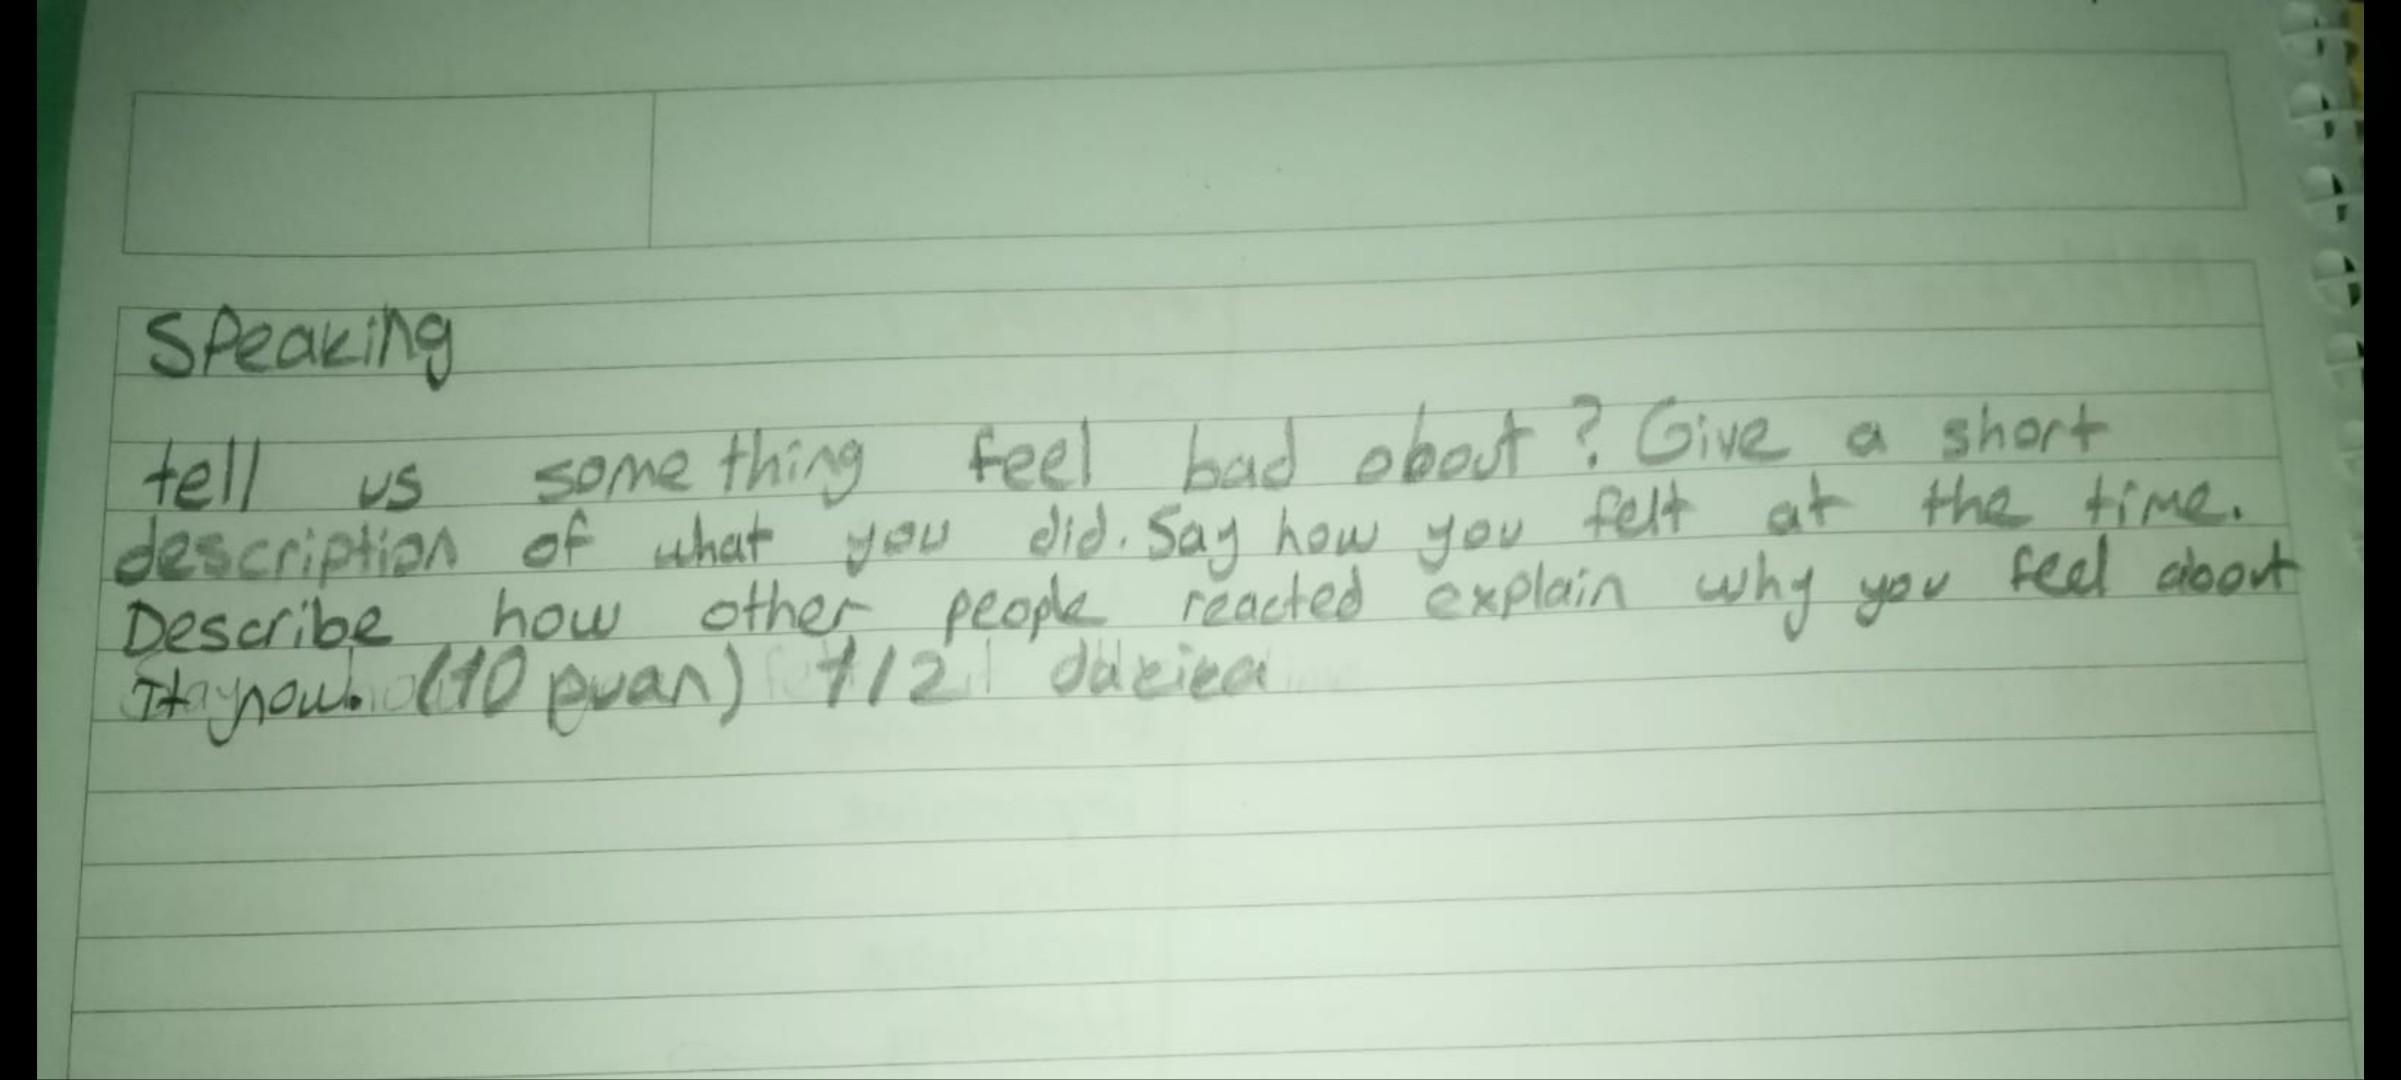 Speaking
tell us something feel bad about? Give a short
description of what you did. Say how you felt at the time.
Describe how other people reacted explain why you feel about
It now. (10 puan) 1/2 dakika